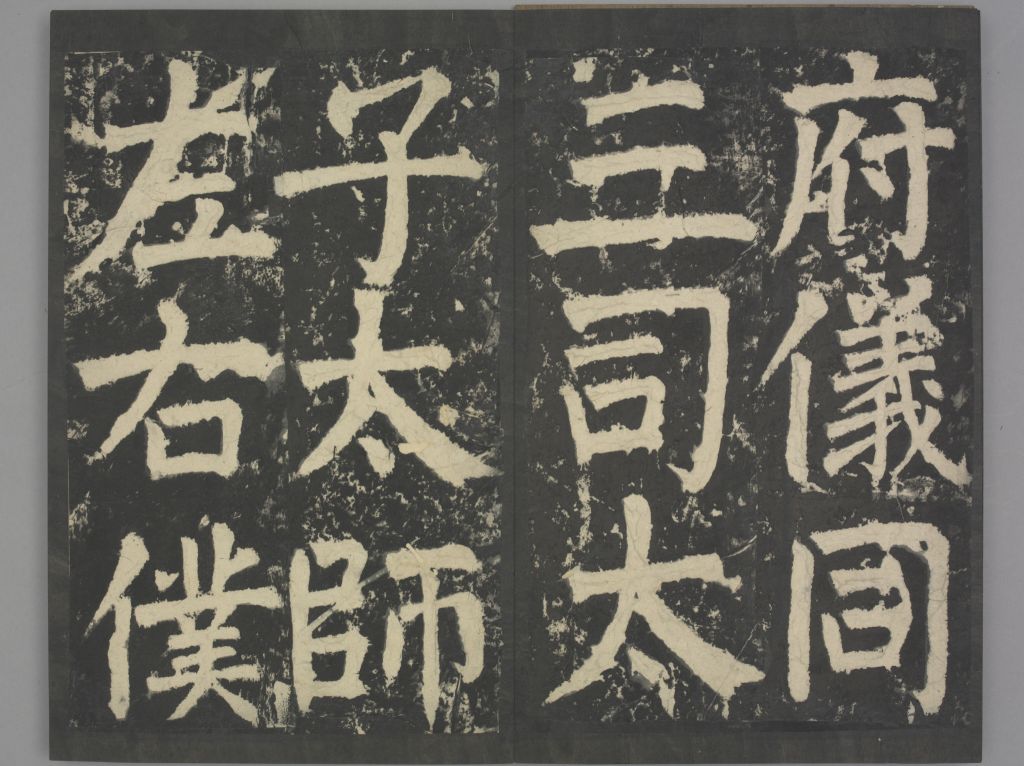 府儀同
三司太
子太師
左右僕